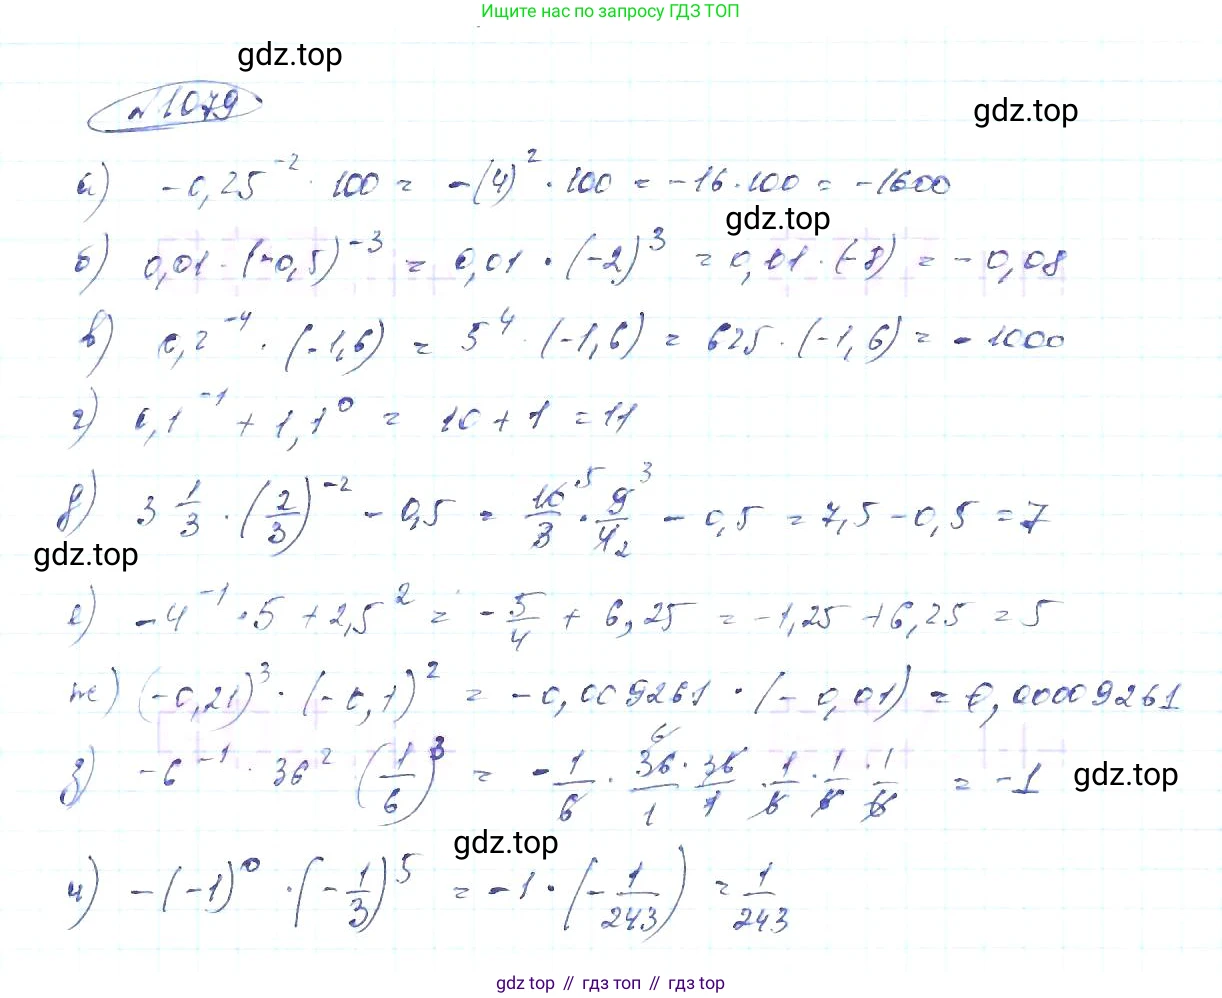 Ищите нас по запросу ГДЗ ТОП
gdz.top
№1079
gdz.top
а) -0,25^{-2} · 100 = -(4)^2 · 100 = -16 · 100 = -1600
gdz.top
б) 0,01 · (-0,5)^{-3} = 0,01 · (-2)^3 = 0,01 · (-8) = -0,08
в) 0,2^{-4} · (-1,6) = 5^4 · (-1,6) = 625 · (-1,6) = -1000
г) 0,1^{-1} + 1,1^0 = 10 + 1 = 11
д) 3 1/3 · (2/3)^{-2} - 0,5 = 10/3 ^5 · 9/4 ^3 _2 - 0,5 = 7,5 - 0,5 = 7
gdz.top
е) -4^{-1} · 5 + 2,5^2 = -5/4 + 6,25 = -1,25 + 6,25 = 5
ж) (-0,21)^3 · (-0,1)^2 = -0,009261 · (-0,01) = 0,00009261
з) -6^{-1} · 36^2 · (1/6)^3 = -1/6 · 36/1 ^6 · 36/1 · 1/6 · 1/6 · 1/6 = -1
gdz.top
gdz.top
и) -(-1)^0 · (-1/3)^5 = -1 · (-1/243) = 1/243
gdz.top // гдз топ // гдз top